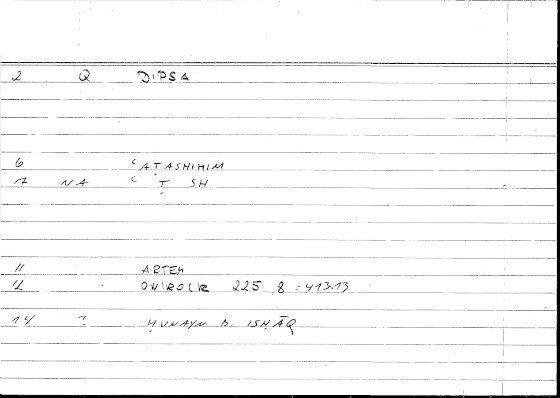 2 Q DIPSA
6 ʿAṬASHIHIM
7 NA ʿ Ṭ SH
11 ARTEM
12 ONIROCR 225, 8 = 413.13
14 ? ḤUNAYN B. ISḤĀQ